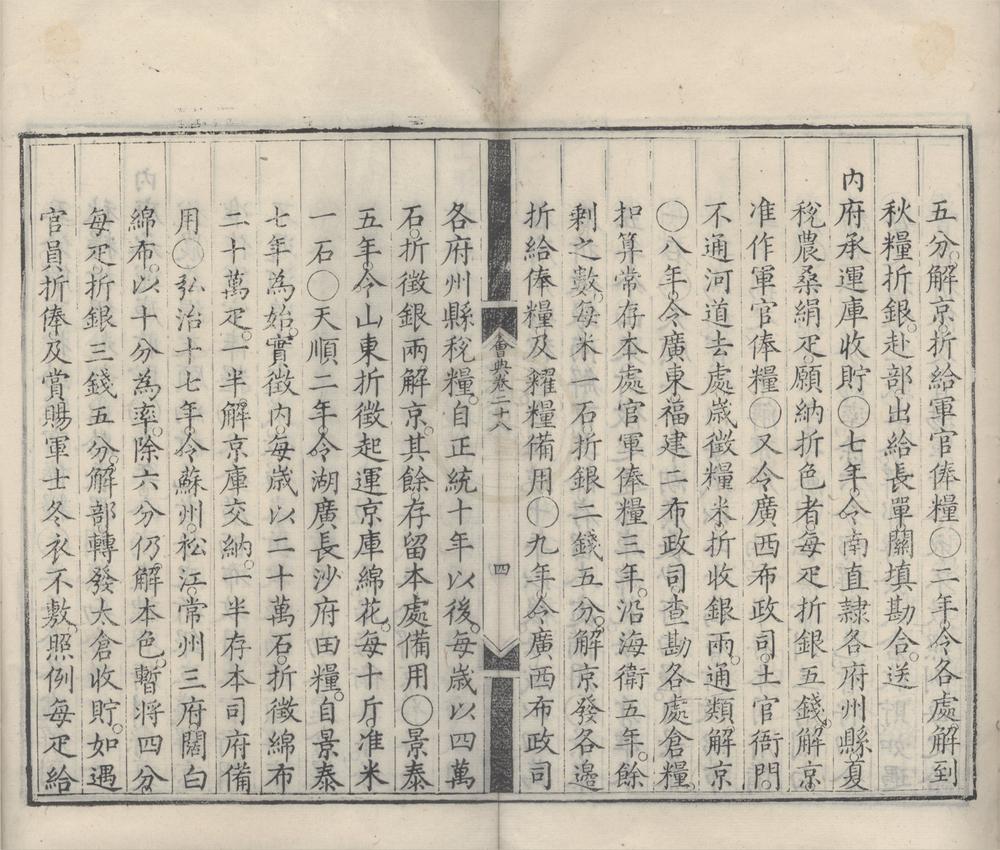 五分。解京。折給軍官俸糧○二年。令各處。解到
秋糧折銀。赴部出給長單。關填勘合。送
内府承運庫收貯○七年。令南直隷各府州縣。夏
稅農桑絹疋。願納折色者。每疋折銀五錢。解京。
准作軍官俸糧○又令廣西布政司。土官衙門。
不通河道去處。歲徵糧米。折收銀兩。通類解京
○八年。令廣東。福建二布政司。查勘各處倉糧。
扣算常存本處官軍俸糧三年。沿海衛五年。餘
剩之數。每米一石。折銀二錢五分。解京。發各邊
折給俸糧。及糴糧備用○九年。令廣西布政司
會典卷二十八
四
各府州縣稅糧。自正統十年以後。每歲以四萬
石。折徵銀兩解京。其餘存留本處備用○景泰
五年。令山東折徵起運京庫綿花。每十斤。准米
一石○天順二年。令湖廣長沙府田糧。自景泰
七年為始。實徵内。每歲以二十萬石。折徵綿布
二十萬疋。一半解京庫交納。一半存本司府備
用○弘治十七年。令蘇州。松江。常州三府。闊白
綿布。以十分為率。除六分仍解本色。暫将四分
每疋。折銀三錢五分。解部。轉發太倉收貯。如遇
官員折俸。及賞賜軍士冬衣不敷。照例每疋給